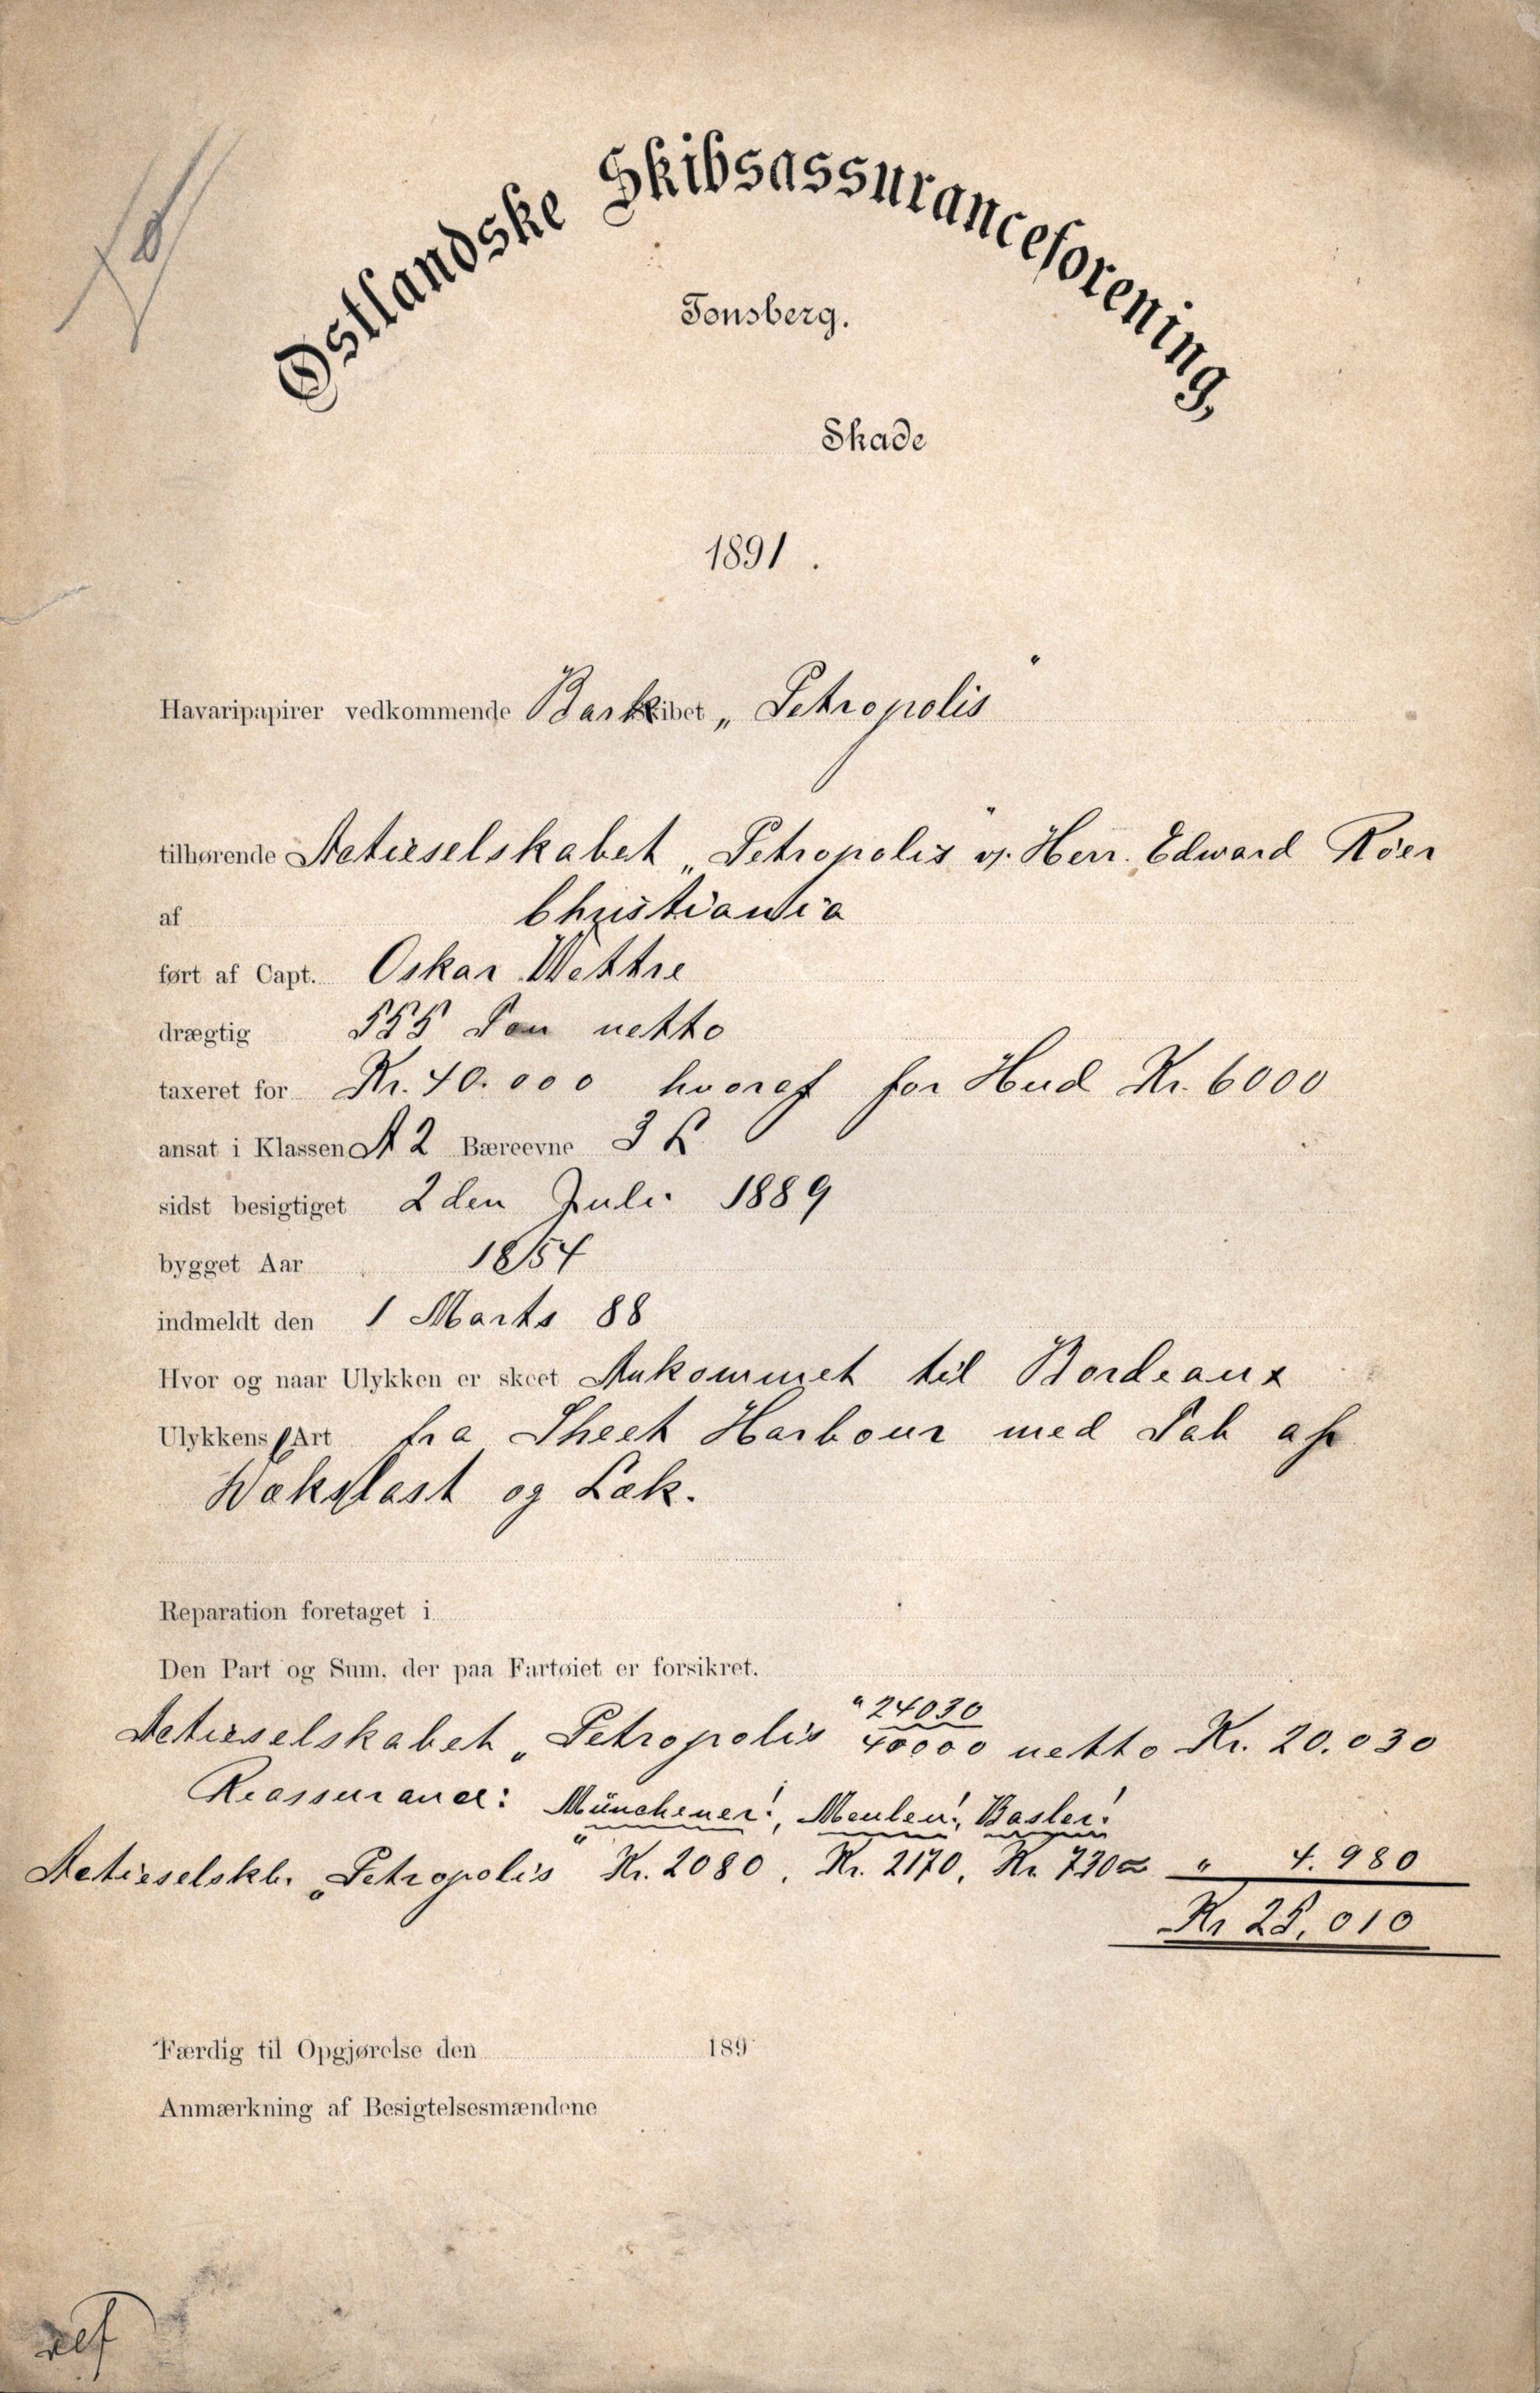 Østlandske Skibsassuranceforening,
Tønsberg.
Skade
1891.
Havaripapirer vedkommende Bark Skibet „Petropolis"
tilhørende Actieselskabet „Petropolis" v. Herr. Edward Röer
af Christiania
ført af Capt. Oskar Wettre
drægtig 555 Ton netto
taxeret for Kr. 40.000 hvoraf for Hud Kr. 6000
ansat i Klassen A 2 Bæreevne 3 L
sidst besigtiget 2 den Juli 1889
bygget Aar 1854
indmeldt den 1 Marts 88
Hvor og naar Ulykken er skeet Ankommet til Bordeaux
Ulykkens Art fra Sheet Harbour med Tab af
Dækslast og Læk.
Reparation foretaget i
Den Part og Sum, der paa Fartøiet er forsikret.
Actieselskabet „Petropolis" 24030/40000 netto Kr. 20.030
Reassurance: Münchener!, Meulen!, Basler!
Actieselskb. „Petropolis" Kr. 2080, Kr. 2170, Kr. 730 = " 4.980
Kr 25,010
Færdig til Opgjørelse den 189
Anmærkning af Besigtelsesmændene